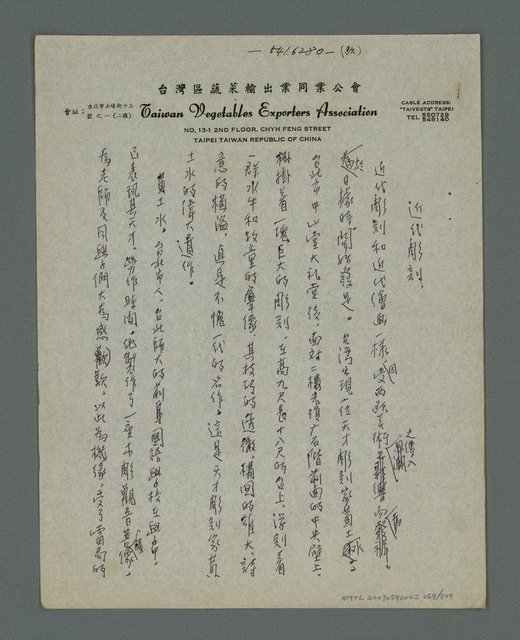 541.6280-
台灣區蔬菜輸出業同業公會
會址：台北市赤峰街十三號之一(二樓)
Taiwan Vegetables Exporters Association
CABLE ADDRESS:
"TAIVEGTS" TAIPEI
TEL 550729
548140
NO, 13-1 2ND FLOOR. CHYH FENG STREET
TAIPEI TAIWAN REPUBLIC OF CHINA
近代彫刻、
近代彫刻和近代繪画一樣，受西歐美術
日據時開始發足。台灣出現一位天才彫刻家黃土水。
台北市中山堂大礼堂後，面對二樓光復廳石階前面的中央壁上，
掛着一塊巨大的彫刻，在高九尺長十八尺的台上，浮刻着
一群水牛和牧童的羣像，其技巧的透徹，構图的雄大，詩
意的橫溢，真是不愧一代的名作。這是天才彫刻家黃
土水的偉大遺作。
黃土水，台北市人，台北師大的前身國語學校在學中，
已表現其天才，勞作時间，他製作了一座木彫觀音菩薩像，
為老師及同學們大為感歎，以此為機緣，受了當局的
HMTL 20070590002 269/309